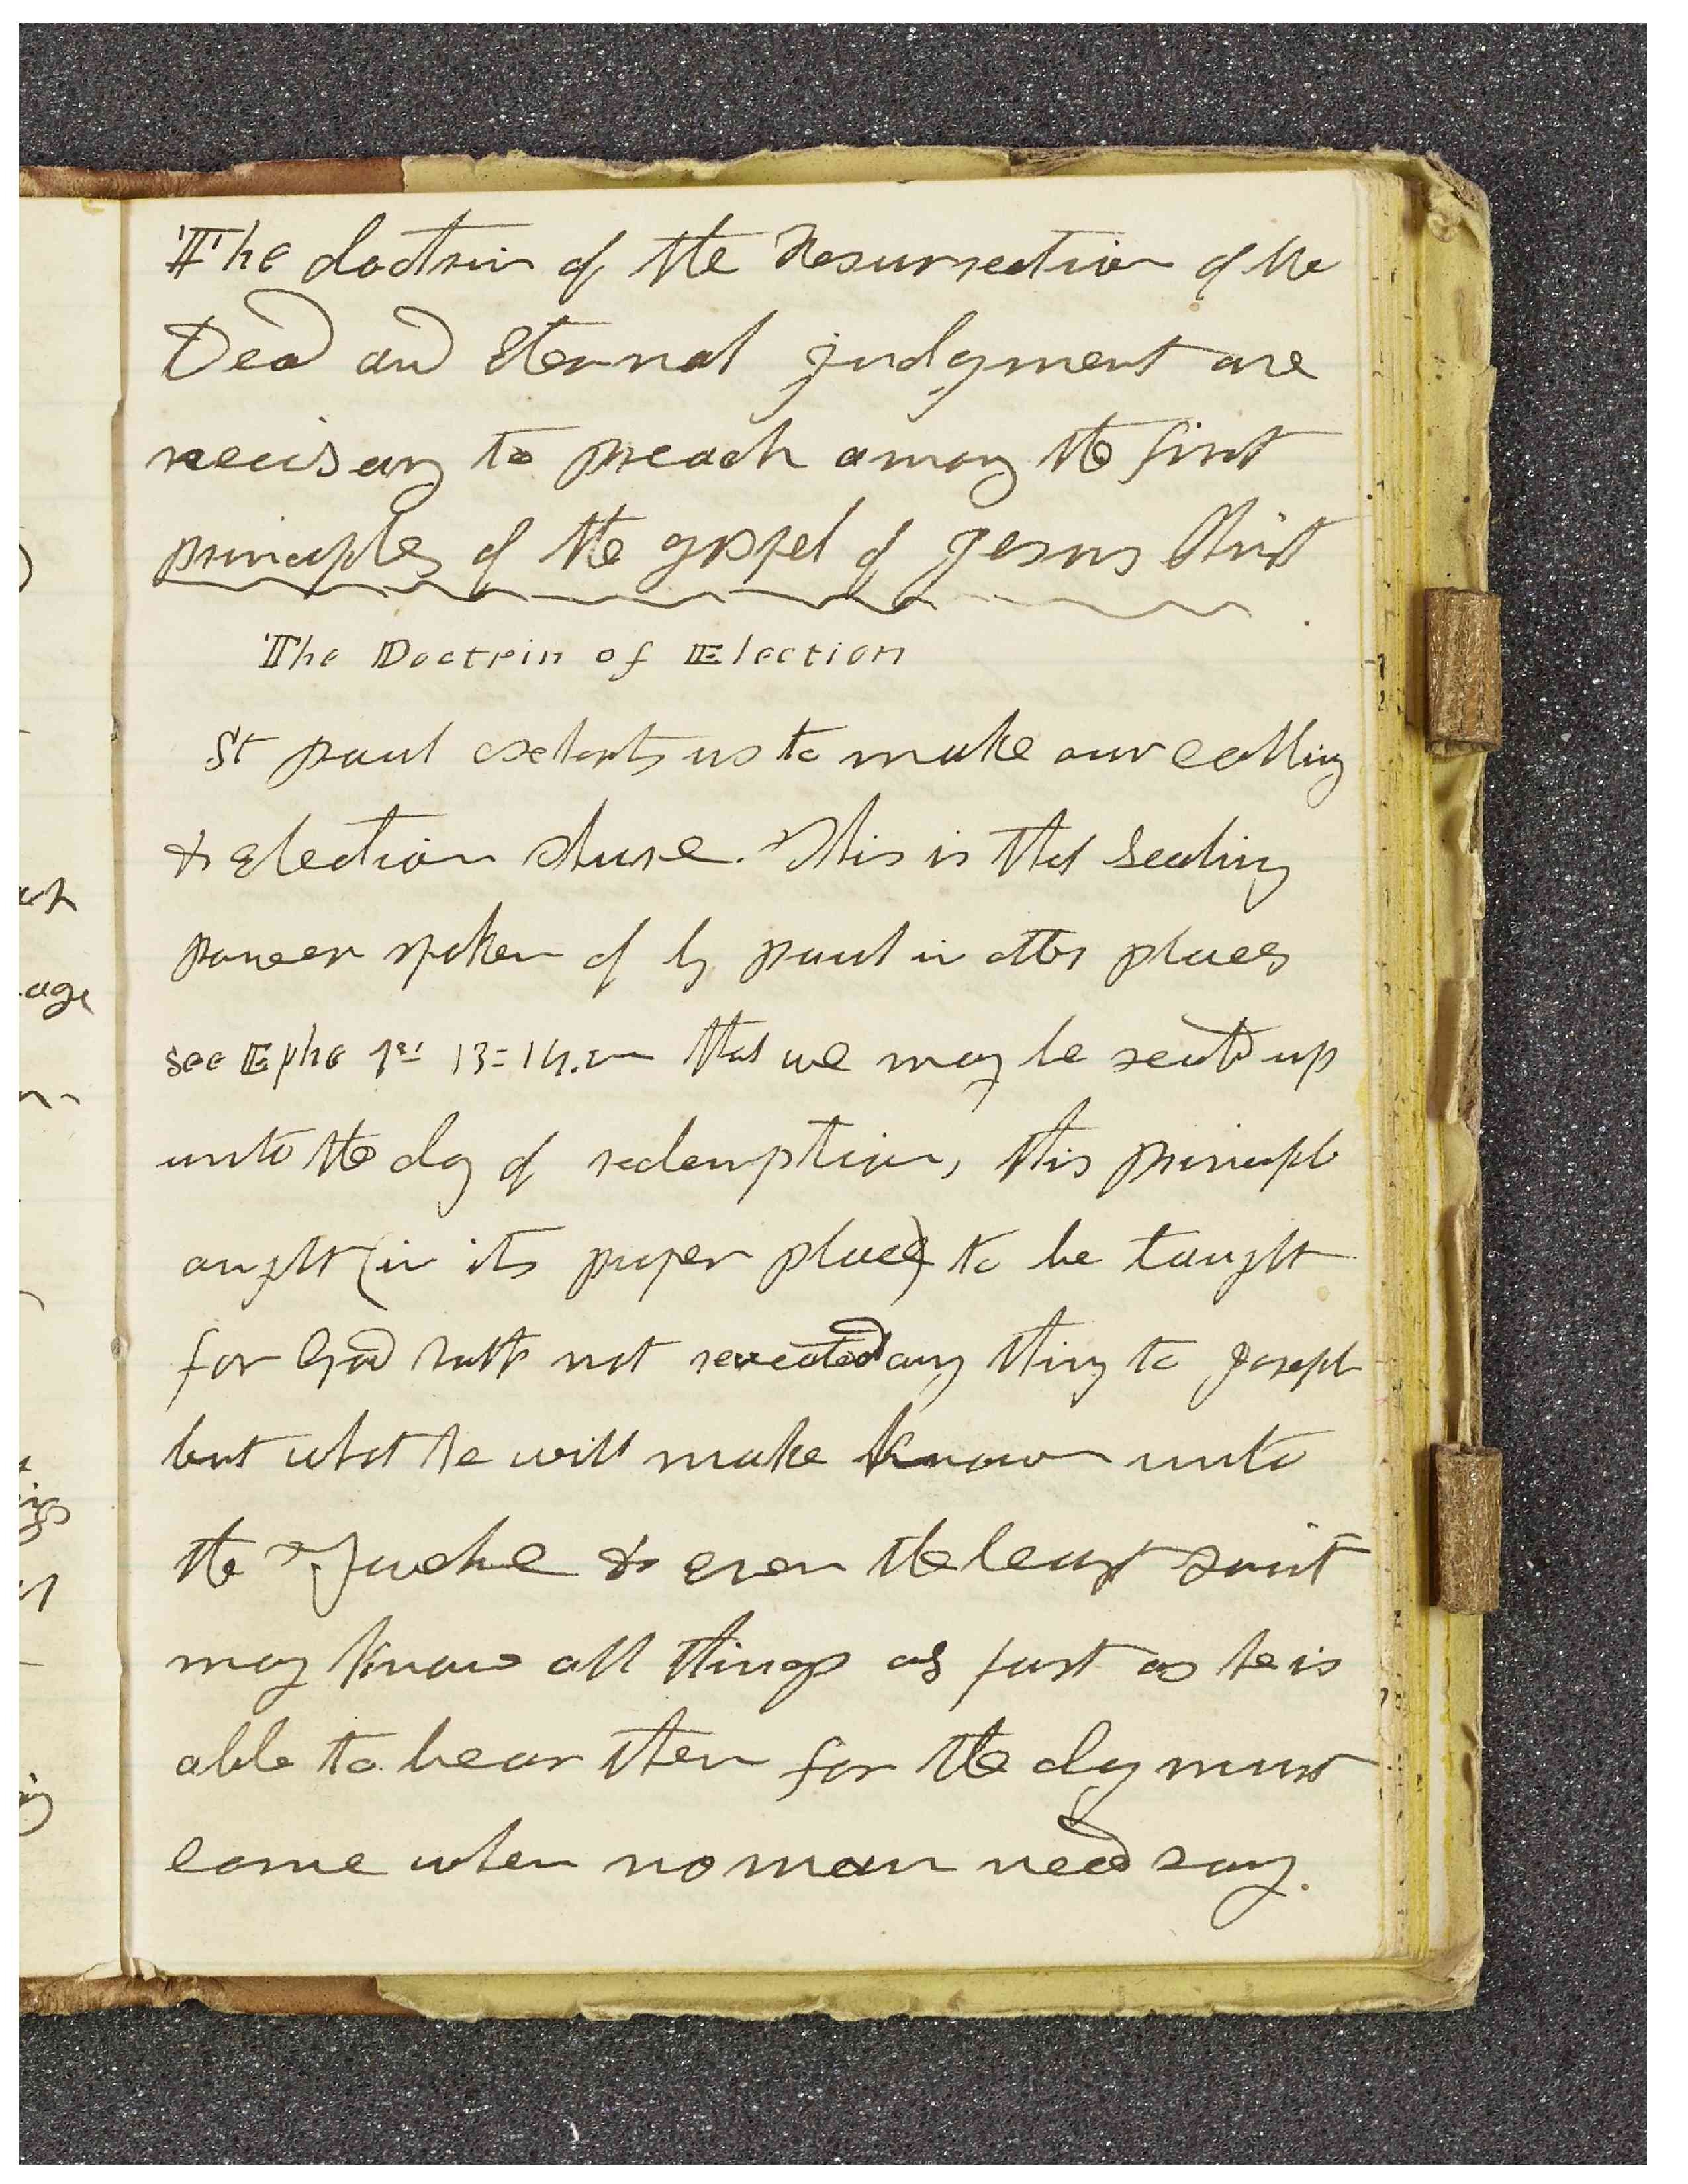 The doctrin of the Resurrection of the
Dead and Eternal judgment are
necisary to preach among the first
principles of the gospel of Jesus Christ
The Doctrin of Election
St paul exhorts us to make our calling
& Election shure. This is that Sealing
power spoken of by paul in other places
see Ephe 1st 13=14. that we may be seald up
unto the day of redemption, this principle
ought (in its proper place) to be taught
for God hath not revealed any thing to Joseph
but what he will make known unto
the Twelve & even the least saint
may know all things as fast as he is
able to bear them for the day must
come when no man need say.